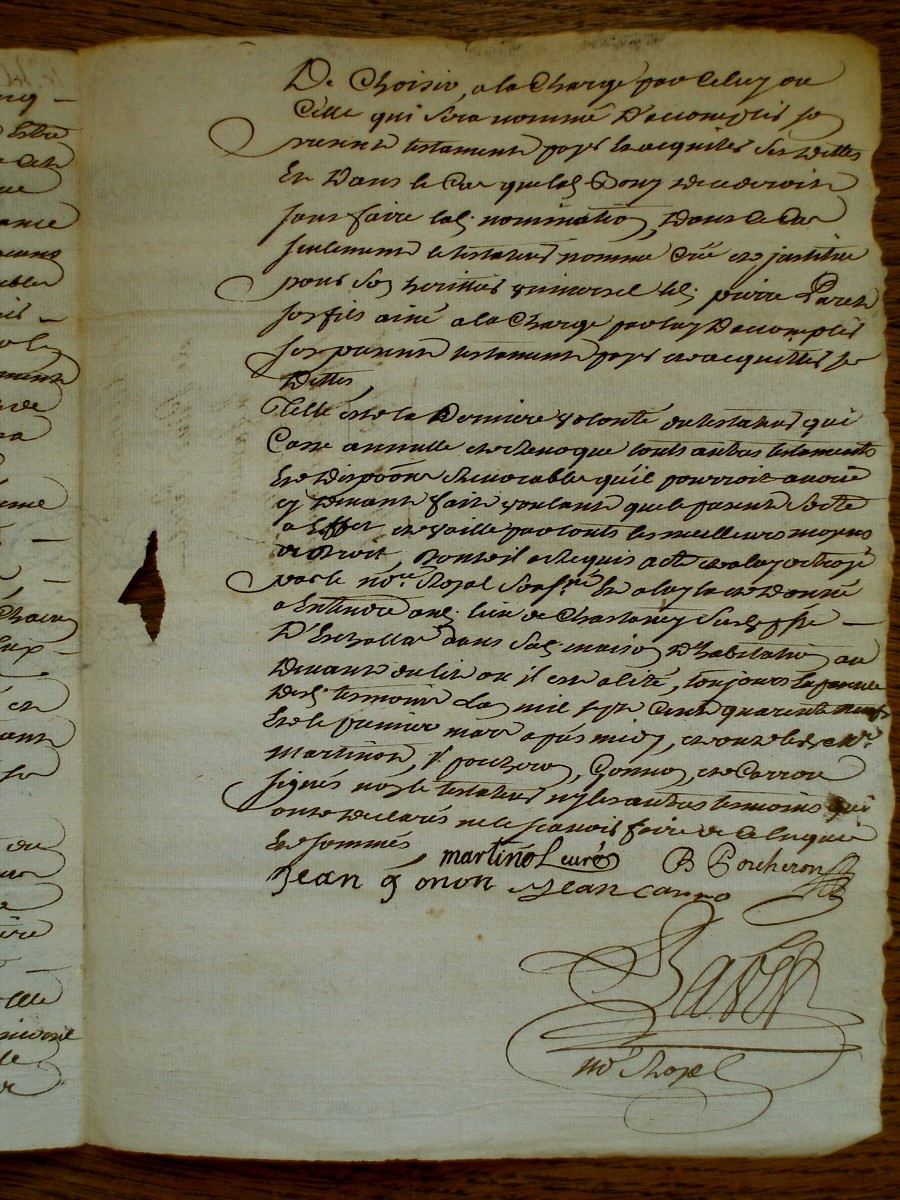 De choisir, a la charge par celuy ou
celle qui sera nommé d'accomplir so
present testament payer et acquiter ses dettes
Et dans le cas que lad.
sans faire lad. nomination, dans ce cas
seulement le testateur nomme crée et institue
pour son heritier universel led. pierre
son fils ainé a la charge par luy d'accomplir
son present testament payer et acquitter se
dettes,
Telle est la derniere volonté du testateur qui
casse annulle et revoque touts autres testaments
et disposõns revocable qu'il pourroit avoir
cy devant fait voulant que le present sorte
a Effet et vaille par touts les meilleurs moyens
de droit, Dont il a requis acte a luy octroyé
par le nore. Royal sousne. Et a luy lu et donné
a entendre aud. lieu de
dans sad. maison d'habitation au
devant du lit ou il est alité, toujours En presence
desd. temoins L'an mil sept cent quarante neuf
Et le premier mars apres midy, et ont led. Mr.
martinon, sr. pocheron, Gonon, et Carron
signés non le testateur ny les autres temoins qui
ont declarés ne le scavoir faire de ce enquis
Et sommés
martinõ curé B Pocheron
Jean gonon Jean carro
no Royal